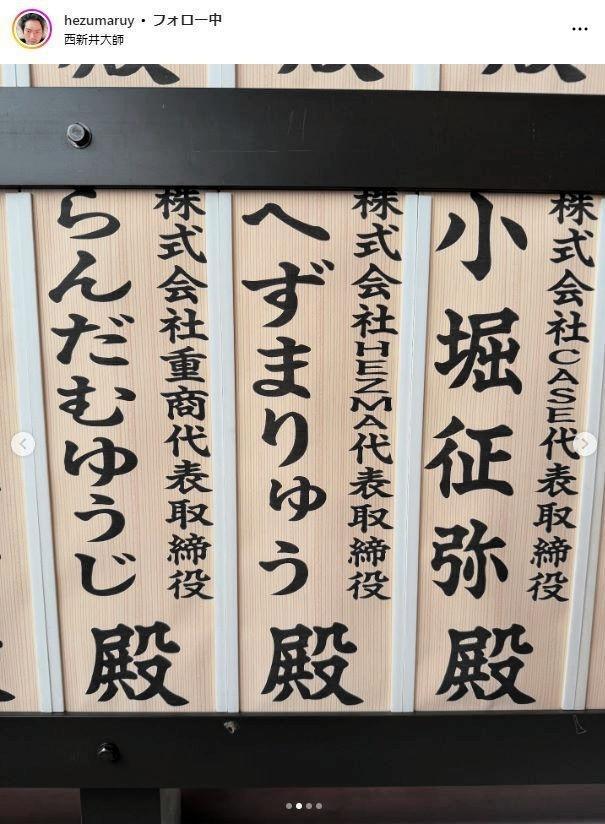 hezumaruy • フォロー中
西新井大師
株式会社CASE代表取締役
小堀征弥殿
株式会社HEZMA代表取締役
へずまりゅう殿
株式会社重商代表取締役
らんだむゆうじ殿